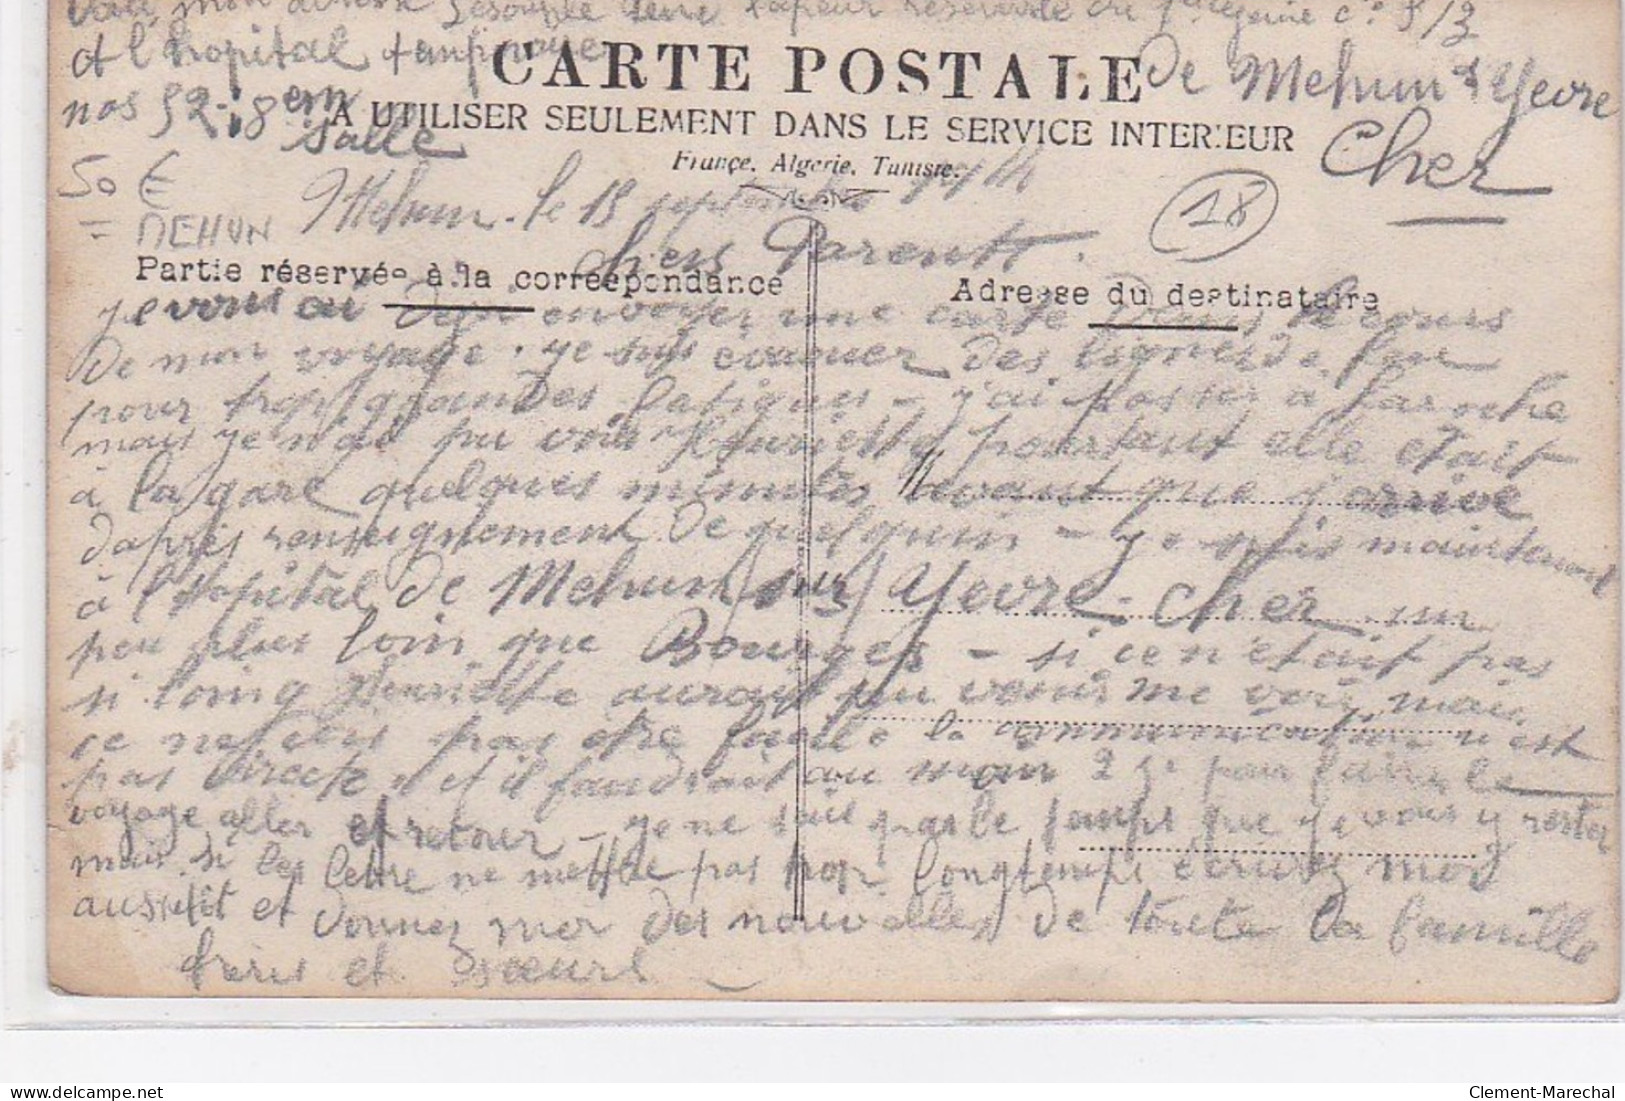 mon adresse réserviste du
et l'hopital temporaire de Mehun s Yevre
CARTE POSTALE
nos 52 - 8em salle Cher
A UTILISER SEULEMENT DANS LE SERVICE INTERIEUR
France, Algérie, Tunisie.
50 €
= MEHUN
18
Mehun - le 19 septembre 1914
Chers Parents.
Partie réservée à la correspondance
Adresse du destinataire
je vous ai deja envoyer une carte dans le cours
de mon voyage. je suis évacuer des lignes de feu
pour trop grandes fatigues - j'ai passer à Laroche
mais je n'ai pu voir Henriette pourtant elle etait
à la gare quelques minutes avant que j'arrive
d'après renseignement de quelqu'un - je suis maintenant
à l'Hopital de Mehun / sur / Yevre - Cher - un
peu plus loin que Bourges - si ce n'était pas
si loing Henriette aurait pu venir me voir mais
ce ne seras pas être facile la communication n'est
pas directe et il faudrait au moin 2 j. pour faire le
voyage aller et retour - je ne sais pas le temps que je vais y rester
mais si les lettre ne mette pas trop longtemps écrivez moi
aussitôt et donnez moi des nouvelles de toute la famille
frères et sœurs -
Clement-Marechal